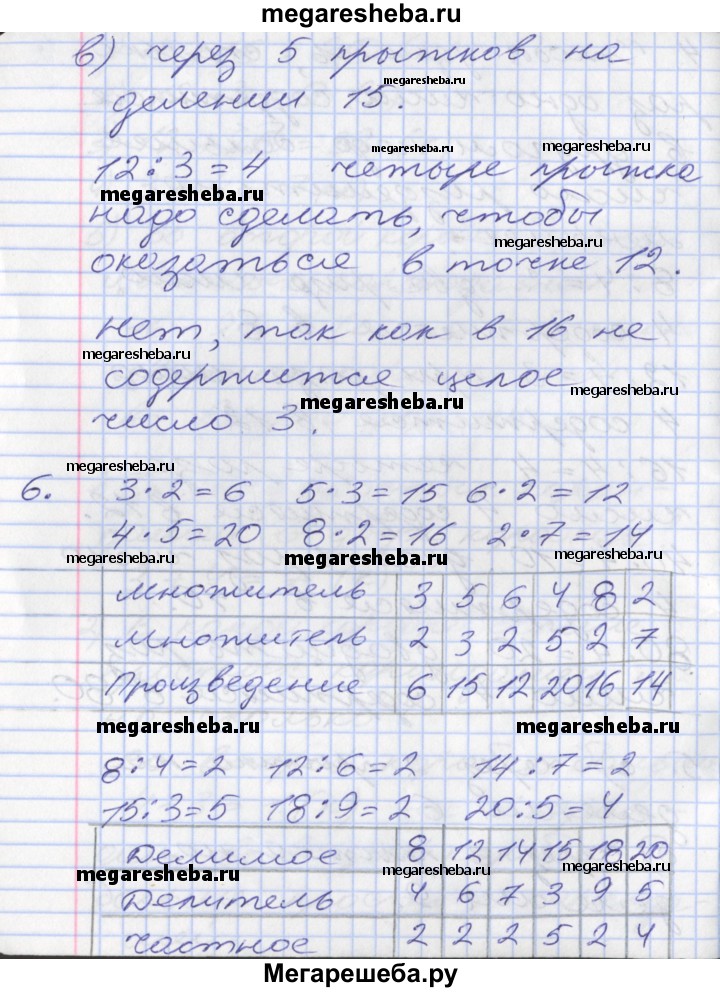 megaresheba.ru
в) через 5 прыжков на
megaresheba.ru
делении 15.
megaresheba.ru
12:3=4 четыре прыжка
megaresheba.ru
надо сделать, чтобы
megaresheba.ru
оказаться в точке 12.
нет, так как в 16 не
megaresheba.ru
содержится целое
megaresheba.ru
megaresheba.ru
число 3.
megaresheba.ru
6. 3·2=6 5·3=15 6·2=12
4·5=20 8·2=16 2·7=14
megaresheba.ru megaresheba.ru megaresheba.ru
Множитель 3 5 6 4 8 2
Множитель 2 3 2 5 2 7
Произведение 6 15 12 20 16 14
megaresheba.ru megaresheba.ru
8:4=2 12:6=2 14:7=2
15:3=5 18:9=2 20:5=4
Делимое 8 12 14 15 18 20
megaresheba.ru megaresheba.ru megaresheba.ru
Делитель 4 6 7 3 9 5
частное 2 2 2 5 2 4
Мегарешеба.ру